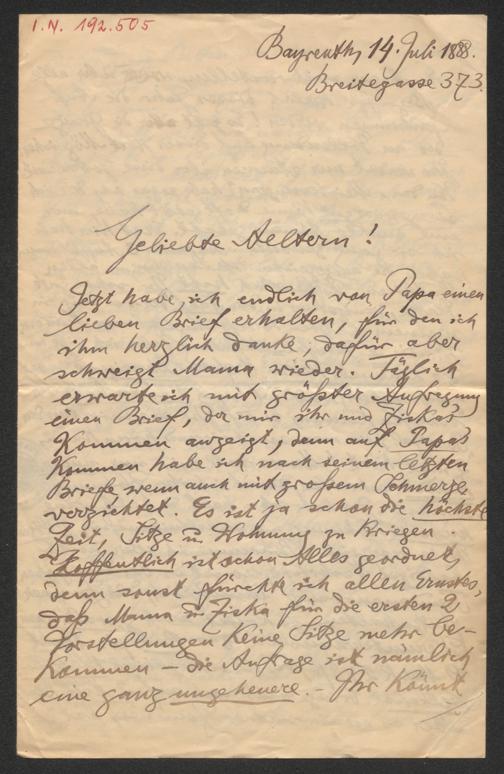 I.N. 192.505
Bayreuth, 14. Juli 1888.
Breitegasse 373.
Geliebte Aeltern!
Jetzt habe ich endlich von Papa einen
lieben Brief erhalten, für den ich
ihm herzlich danke, dafür aber
schweigt Mama wieder. Täglich
erwarte ich mit größter Aufregung
einen Brief, der mir ihr und Ziskas
Kommen anzeigt, denn auf Papas
Kommen habe ich nach seinem letzten
Briefe, wenn auch mit großem Schmerze,
verzichtet. Es ist ja schon die höchste
Zeit, Sitze u. Wohnung zu kriegen.
Hoffentlich ist schon Alles geordnet,
denn sonst fürchte ich allen Ernstes,
daß Mama u. Ziska für die ersten 2
Vorstellungen keine Sitze mehr be-
kommen – die Anfrage ist nämlich
eine ganz ungeheuere. – Ihr könnt